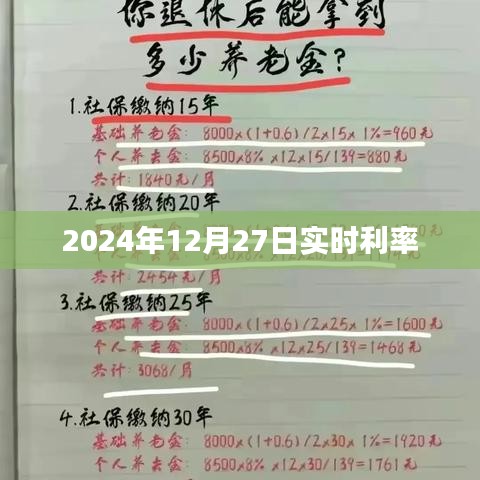 你退休后能拿到
多少养老金?
1.社保缴纳15年
基础养老金: 8000×(1+0.6)/2×15×1%=960元
个人养老金: 8500×8%×12×15/139=880元
共计: 1840元/月
2.社保缴纳20年
2024年12月27日实时利率
共计: 2454元/月
3.社保缴纳25年
基础养老金: 8000×(1+0.6)/2×25×1%=1600元
个人养老金: 8500×8%×12×25/139=1468元
共计: 3068/月
4.社保缴纳30年
基础养老金: 8000×(1+0.6)/2×30×1%=1920元
个人养老金: 8500×8%×12×30/139=1761元